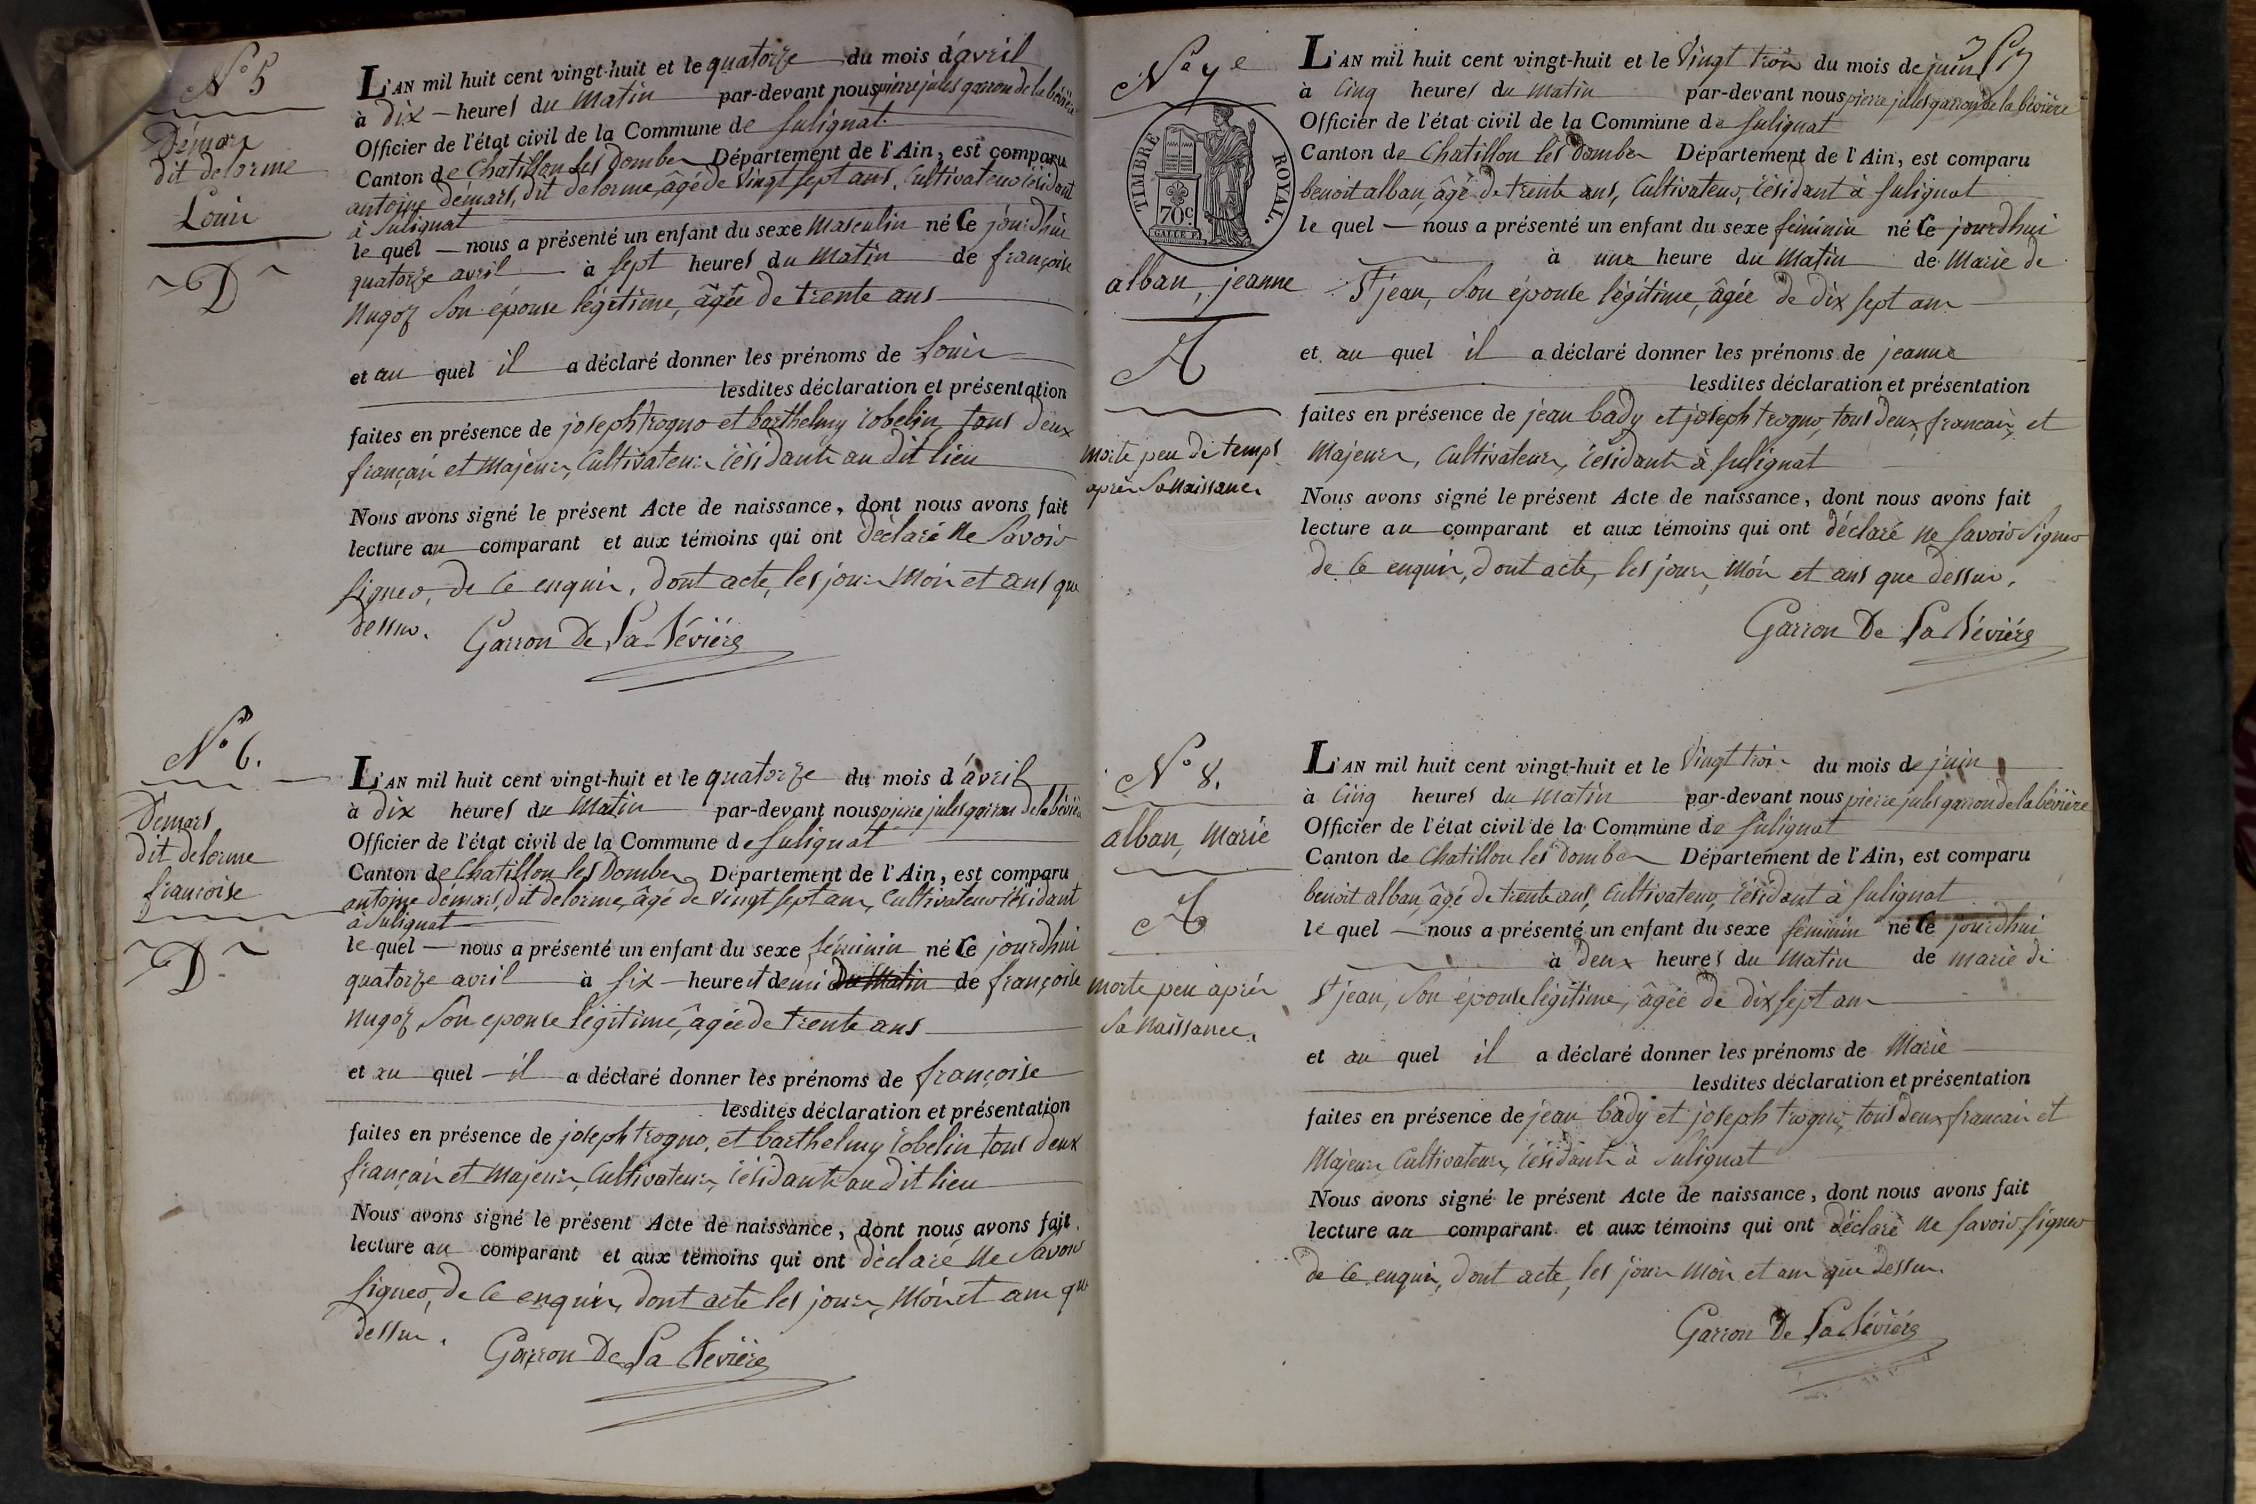 N° 5
Démars
dit delorme
Louis
D
L'AN mil huit cent vingt-huit et le quatorze du mois d'avril
à dix heures du matin par-devant nous pierre jules garron de la bévière
Officier de l'état civil de la Commune de Sulignat
Canton de Chatillon les Dombes Département de l'Ain, est comparu
antoine démars, dit delorme, âgé de vingt sept ans, Cultivateur résidant
à Sulignat
le quel nous a présenté un enfant du sexe masculin né Ce jourdhui
quatorze avril à sept heures du matin de françoise
nugoz son épouse légitime, âgée de trente ans
et au quel il a déclaré donner les prénoms de Louis
lesdites déclaration et présentation
faites en présence de joseph trogno et barthelmy robelin tous deux
français et majeurs, Cultivateurs résidants au dit lieu
Nous avons signé le présent Acte de naissance, dont nous avons fait
lecture au comparant et aux témoins qui ont déclaré ne savoir
signer, de ce enquis, dont acte, les jours mois et ans que
dessus.
Garron De La Bévière
N° 6.
Démars
dit delorme
françoise
D
L'AN mil huit cent vingt-huit et le quatorze du mois d'avril
à dix heures du matin par-devant nous pierre jules garron de la bévière
Officier de l'état civil de la Commune de Sulignat
Canton de Chatillon les Dombes Département de l'Ain, est comparu
antoine démars, dit delorme, âgé de vingt sept ans, Cultivateur résidant
à Sulignat
le quel nous a présenté un enfant du sexe féminin né Ce jourdhui
quatorze avril à six heures et demi du matin de françoise
nugoz son epouse légitime, âgée de trente ans
et au quel il a déclaré donner les prénoms de françoise
lesdites déclaration et présentation
faites en présence de joseph trogno, et barthelmy robelin tous deux
français et majeurs, Cultivateurs, résidants au dit lieu
Nous avons signé le présent Acte de naissance, dont nous avons fait
lecture au comparant et aux témoins qui ont déclaré ne savoir
signer, de ce enquis, dont acte les jours, mois et ans que
dessus.
Garron De La Bévière
N° 7e
TIMBRE ROYAL.
70c
GALLE F.
alban, jeanne
A
morte peu de temps
après sa naissance.
L'AN mil huit cent vingt-huit et le vingt trois du mois de juin
à cinq heures du matin par-devant nous pierre jules garron de la bévière
Officier de l'état civil de la Commune de Sulignat
Canton de Chatillon les dombes Département de l'Ain, est comparu
benoit alban, âgé de trente ans, Cultivateur, résidant à Sulignat
le quel nous a présenté un enfant du sexe féminin né Ce jourdhui
à une heure du matin de Marie de
St jean, son épouse légitime, âgée de dix sept ans
et au quel il a déclaré donner les prénoms de jeanne
lesdites déclaration et présentation
faites en présence de jean bady et joseph trogno, tous deux français, et
Majeurs, Cultivateurs, résidants à Sulignat
Nous avons signé le présent Acte de naissance, dont nous avons fait
lecture au comparant et aux témoins qui ont déclaré ne savoir signer
de ce enquis, dont acte, les jours, mois et ans que dessus.
Garron De La Bévière
N° 8.
alban, Marie
A
morte peu après
sa naissance.
L'AN mil huit cent vingt-huit et le vingt trois du mois de juin
à cinq heures du matin par-devant nous pierre jules garron de la bévière
Officier de l'état civil de la Commune de Sulignat
Canton de Chatillon les dombes Département de l'Ain, est comparu
benoit alban, âgé de trente ans, Cultivateur, résidant à Sulignat
le quel nous a présenté un enfant du sexe féminin né Ce jourdhui
à deux heures du matin de marie de
St jean, son épouse légitime, âgée de dix sept ans
et au quel il a déclaré donner les prénoms de Marie
lesdites déclaration et présentation
faites en présence de jean bady et joseph trogno, tous deux francais et
Majeurs, Cultivateurs, résidants à Sulignat
Nous avons signé le présent Acte de naissance, dont nous avons fait
lecture au comparant et aux témoins qui ont déclaré ne savoir signer
de ce enquis, dont acte, les jours mois et ans que dessus.
Garron De La Bévière